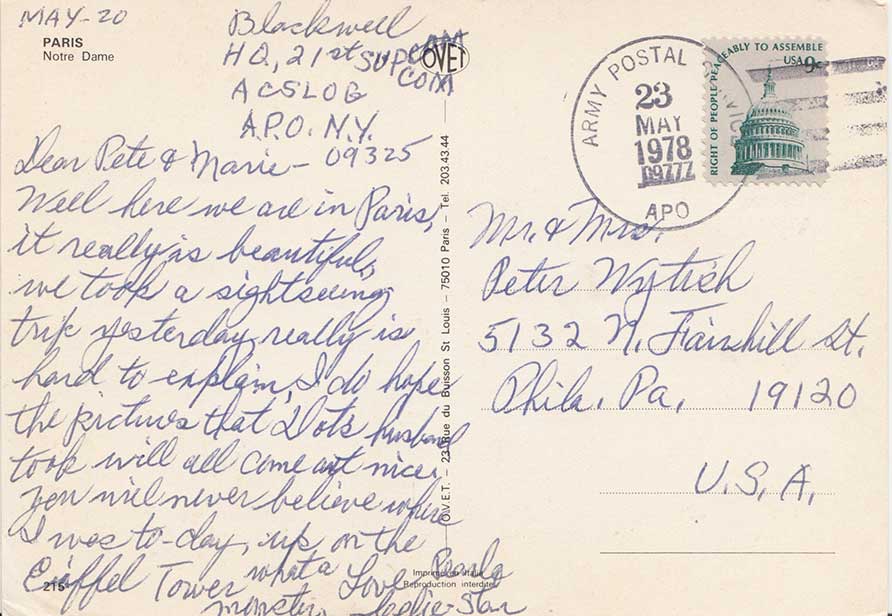 MAY-20
PARIS
Notre Dame
Blackwell
HQ, 21st SUPCOM
ACSLOG
A.P.O. N.Y.
09325
Dear Pete & Marie-
Well here we are in Paris,
it really is beautiful,
we took a sightseeing
trip yesterday, really is
hard to explain, I do hope
the pictures that Dots husband
took will all come out nice.
you will never believe where
I was to-day, up on the
Eiffel Tower what a
monster.
Love
215
OVET
O.V.E.T. – 23, Rue du Buisson St Louis – 75010 Paris – Tel. 203.43.44
Imprimé en Italie
Reproduction interdite
ARMY POSTAL SERVICE
23
MAY
1978
APO
RIGHT OF PEOPLE PEACEABLY TO ASSEMBLE
USA 9c
Mr. & Mrs.
Peter
5132 N. Fairhill St.
Phila. Pa. 19120
U.S.A.